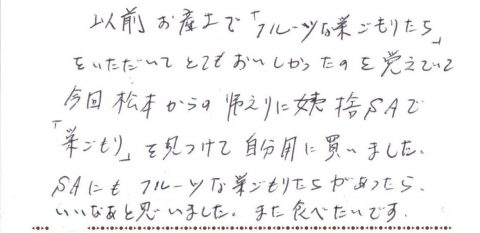 以前お産土で「フルーツな巣ごもりたち」
をいただいてとてもおいしかったのを覚えていて
今回松本からの帰えりに姨捨SAで
「巣ごもり」を見つけて自分用に買いました。
SAにもフルーツな巣ごもりたちがあったら、
いいなあと思いました。また食べたいです.